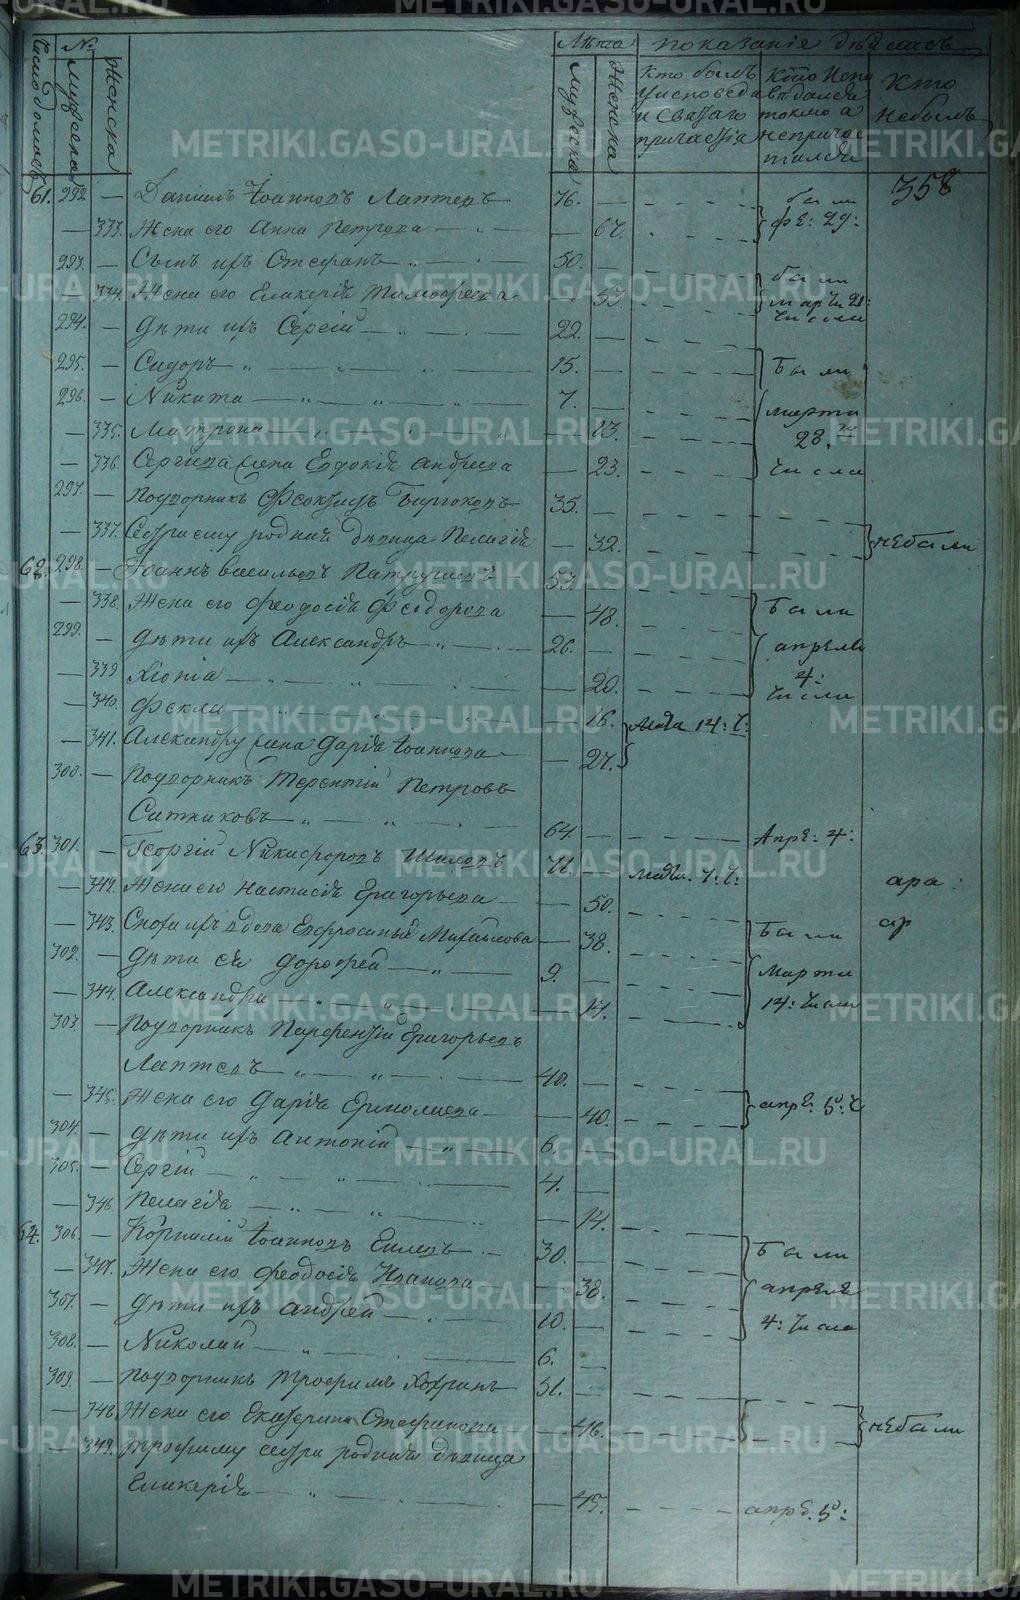 METRIKI.GASO-URAL.RU
Число домовъ № Мужска Женска Лѣта Мужска Женска показаніе дѣйства
Кто былъ у исповеди и Святаго причастія
Кто Испо ведался токмо а непричас тился
Кто небылъ
358
61. 292 — Даніилъ Іоанновъ Лаптевъ 76. — были
— 333. Жена его Анна Петрова — 67. фе: 29:
293. — Сынъ ихъ Стефанъ 50. —
— 334. Жена его Гликерія Тимофеева — 53. были марта 21: числа
294. — Дѣти ихъ Сергій 22. —
295. — Сидоръ 15. — были
296. — Никита 7. — марта
— 335. Матрона — 13. 28.
— 336. Сергиева жена Евдокія Андреева — 23. числа
297. — Подворникъ Феокистъ Бирюковъ 35. —
— 337. Сестра ему родная девица Пелагія — 32. небыли
62. 298. — Іоаннъ васильевъ Патрушевъ 53. —
— 338. Жена его Феодосія Феодорова — 48. были
299. — Дѣти ихъ Александръ 26. — апреля
— 339 Хіонія — 20. 4: числа
— 340. Фекла — 16.
— 341. Александру жена Дарія Іоаннова — 27. Маія 14: ч:
300. — Подворникъ Терентій Петровъ
Ситниковъ 64. — Апре: 4:
63. 301. — Георгій Никифоровъ Шиловъ 71. —
— 342. Жена его Настасія Григорьева — 50.
— 343. Сноха ихъ вдова Евфросинья Михайлова — 38. были
302. — Дѣти ея Дорофей 9. — марта
— 344. Александра — 14. 14: числа
303. — Подворникъ Парфентій Григорьевъ
Лаптевъ 40. —
— 345. Жена его Дарія Ермолаева — 40. апре: 5: ч
304. — Дѣти ихъ Антоній 6. —
305. — Сергій 4. —
— 346. Пелагія — 14.
64. 306. — Корнилій Іоанновъ 30. — были
— 347. Жена его Феодосія Иванова — 38. апреля
307. — Дѣти ихъ Андрей 10. — 4: числа
308. — Николай 6. —
309. — Подворникъ Трофимъ 51. —
— 348. Жена его Екатерина Стефанова — 46. небыли
— 349. Трофиму сестра родная девица
Гликерія — 45. апре. 5: